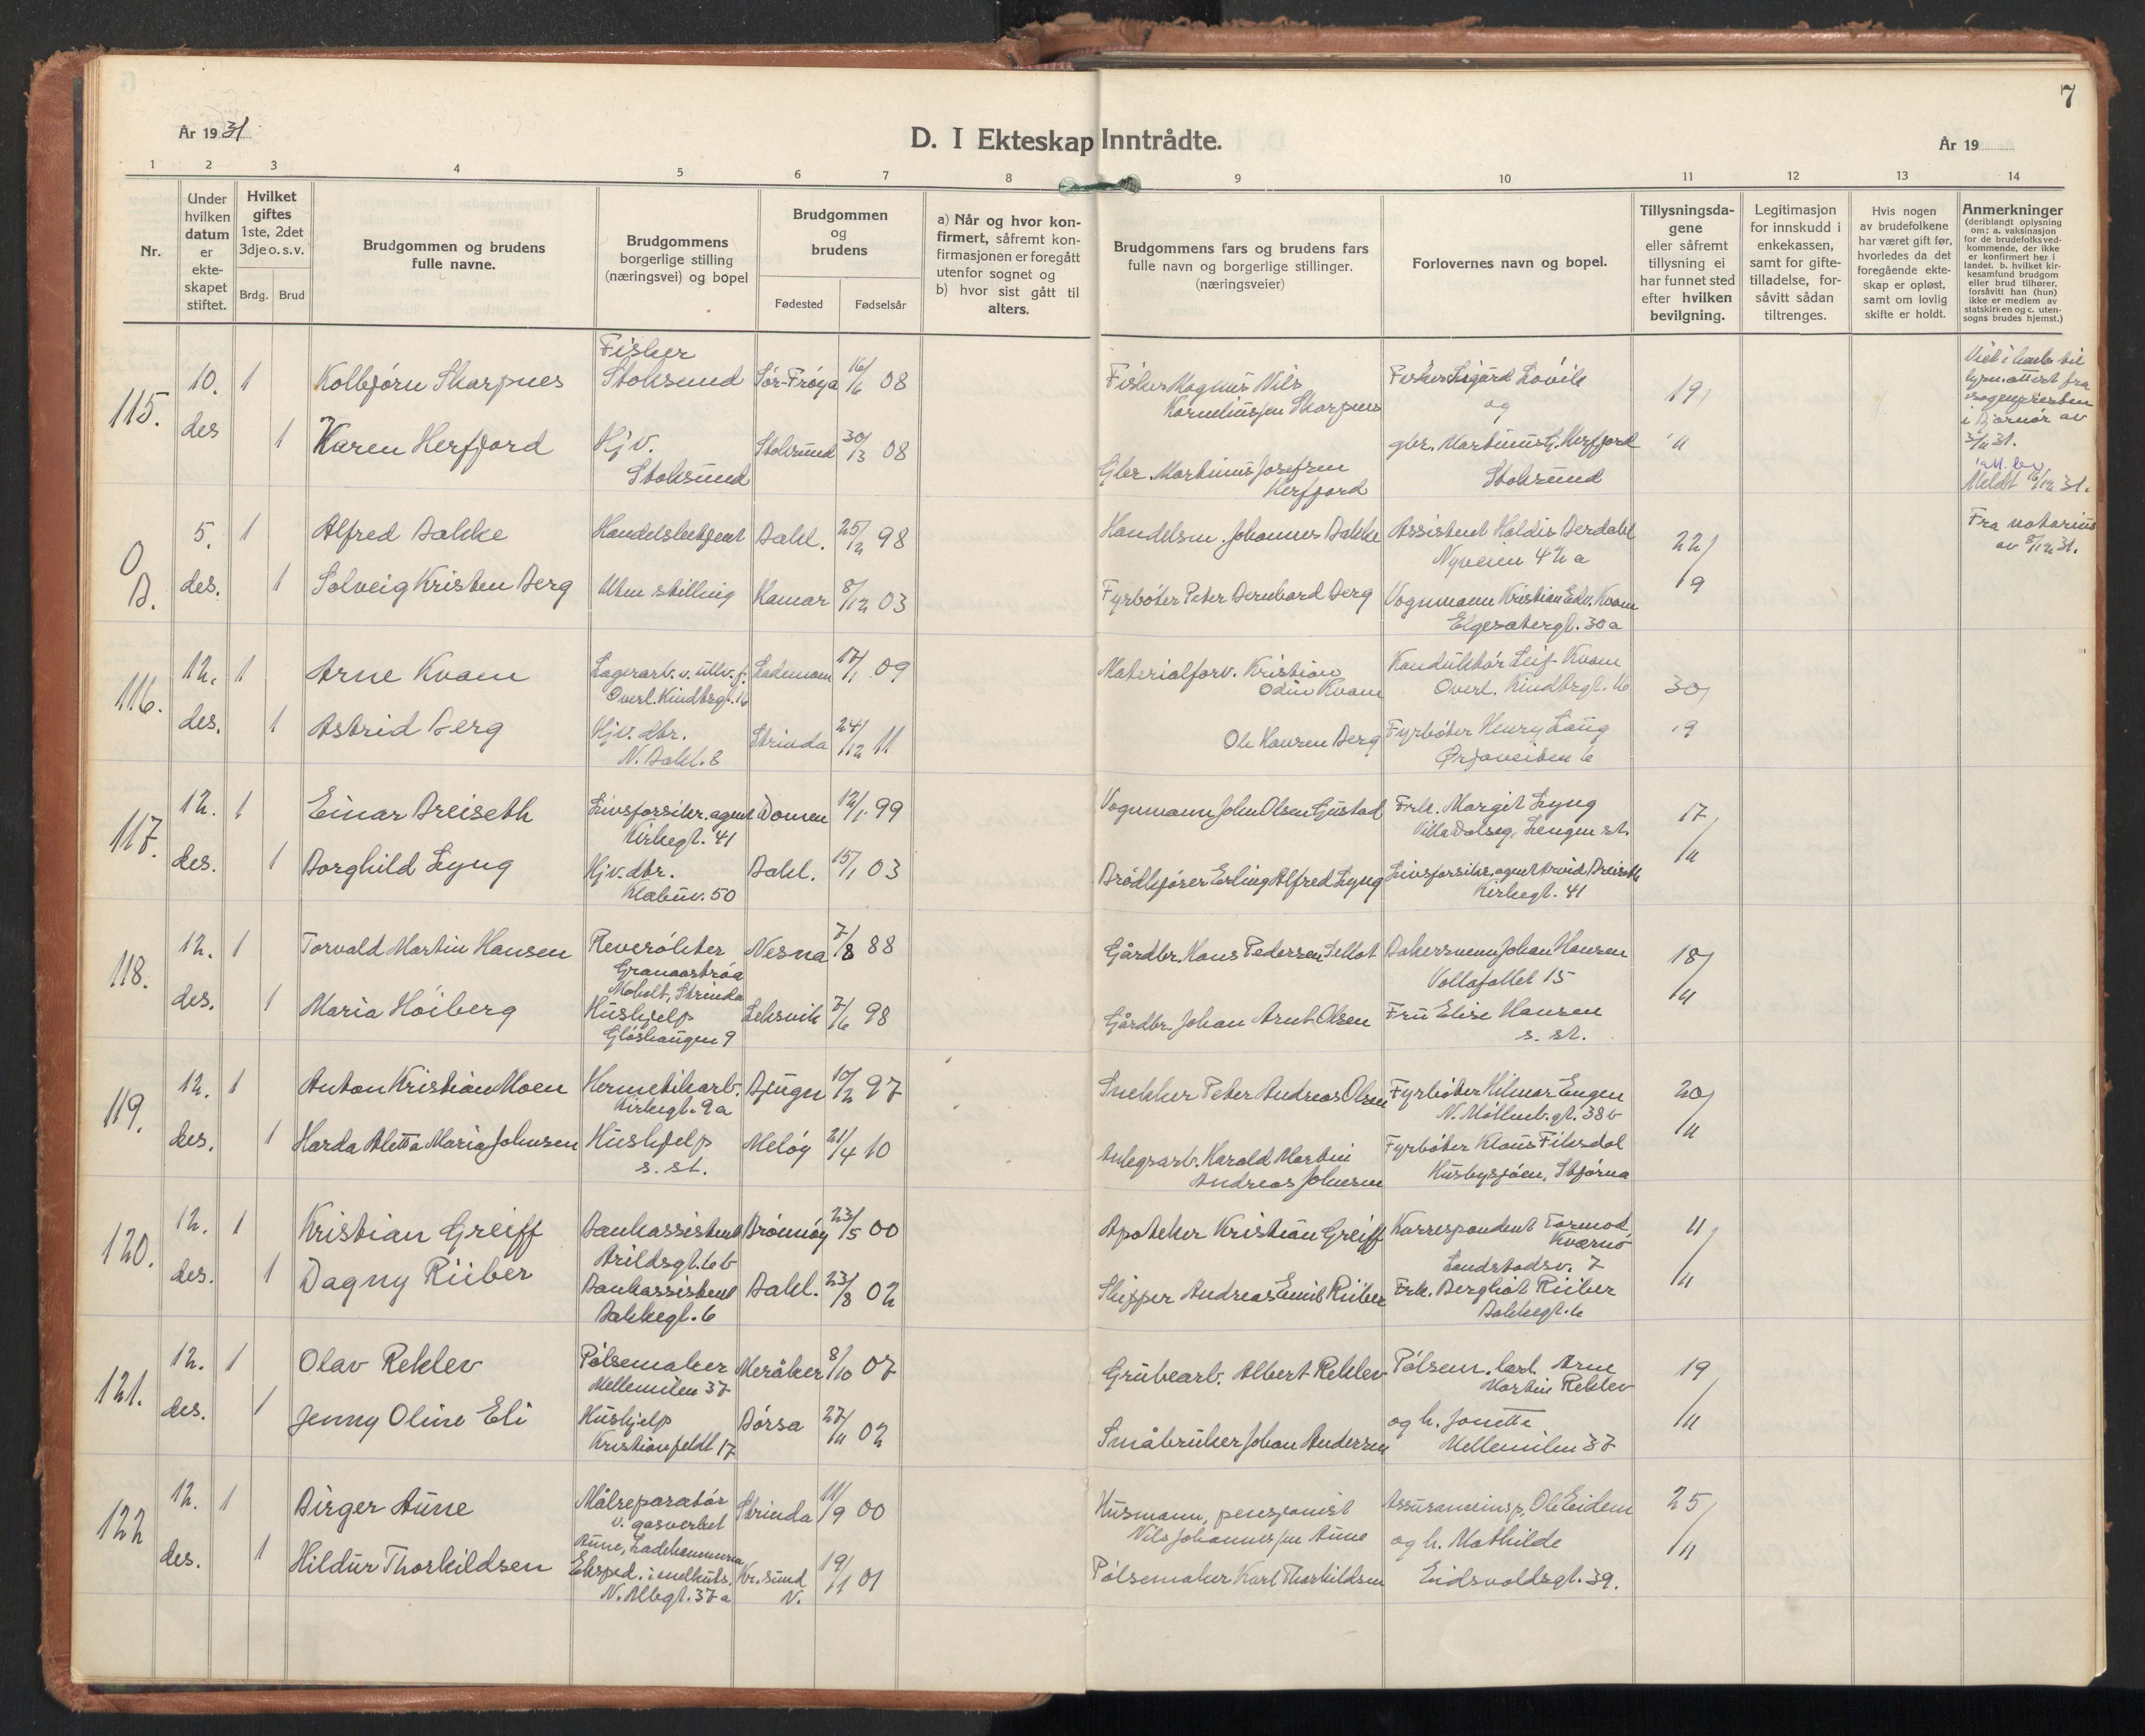 7
År 1931
D. I Ekteskap Inntrådte.
År 19
1 2 3 4 5 6 7 8 9 10 11 12 13 14
Nr.
Under
hvilken
datum
er
ekte-
skapet
stiftet.
Hvilket
giftes
1ste, 2det
3dje o.s.v.
Brdg. Brud
Brudgommen og brudens
fulle navne.
Brudgommens
borgerlige stilling
(næringsvei) og bopel
Brudgommen
og
brudens
Fødested Fødselsår
a) Når og hvor kon-
firmert, såfremt kon-
firmasjonen er foregått
utenfor sognet og
b) hvor sist gått til
alters.
Brudgommens fars og brudens fars
fulle navn og borgerlige stillinger.
(næringsveier)
Forlovernes navn og bopel.
Tillysningsda-
gene
eller såfremt
tillysning ei
har funnet sted
efter hvilken
bevilgning.
Legitimasjon
for innskudd i
enkekassen,
samt for gifte-
tilladelse, for-
såvitt sådan
tiltrenges.
Hvis nogen
av brudefolkene
har været gift før,
hvorledes da det
foregående ekte-
skap er opløst,
samt om lovlig
skifte er holdt.
Anmerkninger
(deriblandt oplysning
om: a. vaksinasjon
for de brudefolks ved-
kommende, der ikke
er konfirmert her i
landet. b. hvilket kir-
kesamfund brudgom
eller brud tilhører,
forsåvitt han (hun)
ikke er medlem av
statskirken og c. uten-
sogns brudes hjemst.)
115.
10. 1 Kolbjørn Skarpnes
Fisker
Stoksund Sør-Frøya 16/6 08
Fisker Magnus Nils
Korneliussen Skarpnes
Fisker Sigurd Løvik
og
19/
des 1 Karen Herfjord
Hjv.
Stoksund
Stoksund 30/3 08
Gbr. Martinus Josefsen
Herfjord
gbr. Martinus J. Herfjord
Stoksund
11
i Bjørnør av
Meldt 16/12 31.
O
B.
5. 1 Alfred Bakke Handelsbetjent Bakl. 25/2 98
Handelsm. Johannes Bakke
Assistent Haldis Berdahl
Nyveien 42 a
22/
Fra notarius
av 8/12 31.
des. 1 Solveig Kristen Berg Uten stilling Hamar 8/12 03
Fyrbøter Peter Bernhard Berg
Vognmann Kristian Edv. Kvam
Elgesetergt. 30a
9
116.
12. 1 Arne Kvam Lagerarb. v. ullv. f.
Overl. Kindtsgt. 16
Lademoen 17/1 09
Materialforv. Kristian
Odin Kvam
Konduktør Leif Kvam
Overl. Kindtsgt. 16
30/
des. 1 Astrid Berg
Hjv. dtr.
N. Bakl. 8
Strinda 24/12 11
Ole Hansen Berg
Fyrbøter Henry Haug
Ørjaveiten 6
9
117.
12. 1 Einar Breiseth Livsforsikr. agent
Kirkegt. 41
Domen 12/1 99
Vognmann John Olsen Gjustad
Frk. Margit Lyng
Villa Solseg, Lengen st.
17/
des. 1 Borghild Lyng
Hjv. dtr.
Klæbuv. 50
Bakl. 15/1 03
Brødkjører Erling Alfred Lyng
Livsforsikr. agent Arvid Breiseth
Kirkegt. 41
/11
118.
12. 1 Torvald Martin Hansen
Reverøkter
Granaastrøa
Moholt, Strinda
Nesna 7/8 88
Gårdbr. Hans Pedersen Sellot
Bakersvenn Johan Hansen
Vollafallet 15
18/
des. 1 Maria Høiberg
Hushjelp
Gløshaugen 9
Leksvik 7/6 98
Gårdbr. Johan Arnt Olsen
Fru Elise Hansen
s. st.
/11
119.
12. 1 Anton Kristian Moen
Hermetikarb.
Kirkegt. 9a
Bjugn 10/2 97
Snekker Peter Andreas Olsen
Fyrbøter Hilmar Engen
N. Møllenb. gt. 38b
20/
des. 1 Harda Aletta Maria Johnsen
Hushjelp
s. st.
Meløy 21/4 10
Anlegsarb. Harald Martin
Andreas Johnsen
Fyrbøter Klaus Fiksdal
Husbysjøen, Stjørna
/11
120.
12. 1 Kristian Greiff
Bankassistent
Arildsgt. 6b
Brønnøy 23/5 00
Apoteker Kristian Greiff
Korrespondent Tormod
Kværnø
Landstadsv. 7
11/
des. 1 Dagny Riiber
Bankassistent
Bakkegt. 6
Bakl. 23/8 02
Skipper Andreas Emil Riiber
Frk. Bergliot Riiber
Bakkegt. 6
/11
121.
12. 1 Olav Reklev
Pølsemaker
Mellemilen 37
Meråker 8/10 07
Grubearb. Albert Reklev
Pølsem. Arne
Martin Reklev
19
des. 1 Jenny Oline Eli
Hushjelp
Kristianfeldt 17
Børsa 27/11 02
Småbruker Johan Andersen
og h. Jonette
Mellemilen 37
/11
122
12. 1 Birger Aune
Målreparatør
v. gasverket
Aune, Ladehammeren
Strinda 11/9 00
Husmann, pensjonist
Nils Johannessen Aune
Assuranceinsp. Ole Eidem
og h. Mathilde
Eidsvoldsgt. 39.
25/
des. 1 Hildur Thorkildsen
Eksped. i melkuts.
N. Allegt. 37a
Kr.sund
N.
19/11 01
Pølsemaker Karl Thorkildsen
/11